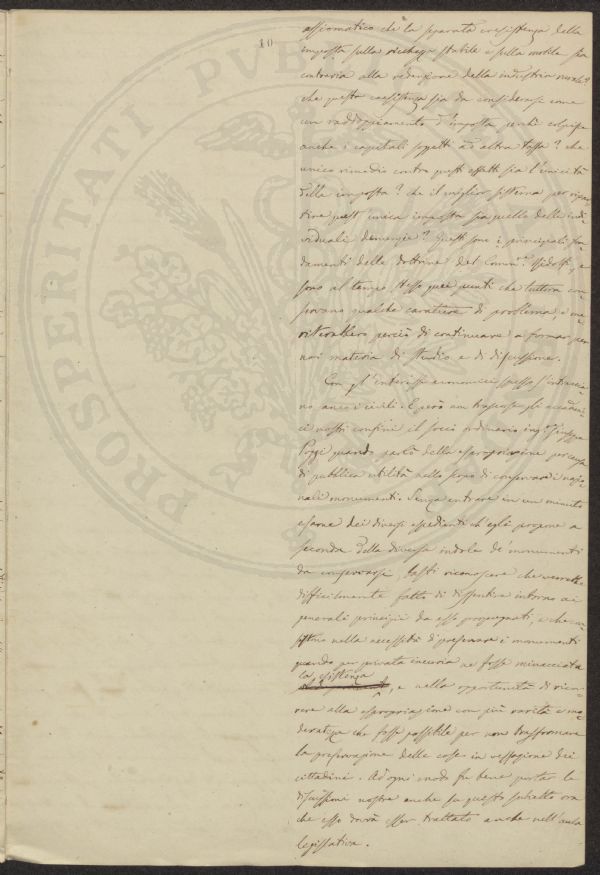 10
assiomatico che la separata coesistenza della
imposta sulla ricchezza stabile e sulla mobile sia
contraria alla redenzione della industria rurale?
che questa coesistenza sia da considerarsi come
un raddoppiamento d'imposta perché colpisce
anche i capitali soggetti ad altra tassa? che
unico rimedio contro questi effetti sia l'unicità
della imposta? che il miglior sistema per ripar
tire quest'unica imposta sia quello delle indi
viduali denunzie? Questi sono i principali fon
damenti delle dottrine del Comm.e , e
sono al tempo stesso quei punti che tuttora con
servano qualche carattere di problema, e me
riterebbero perciò di continuare a formar per
noi materia di studio e di discussione.
Con gl'interessi economici spesso s'intreccia
no anco i civili. E però non trapassò gli accademi
ci nostri confini il socio ordinario ing.e Giuseppe
Poggi quando parlò della espropriazione per causa
di pubblica utilità nello scopo di conservare i nazio
nali monumenti. Senza entrare in un minuto
esame dei diversi espedienti ch'egli propone a
seconda della diversa indole de' monumenti
da conservarsi, basti riconoscere che verrebbe
difficilmente fatto di dissentire intorno ai
generali principii da esso propugnati, e che con
sistono nella necessità di preservare i monumenti
quando per privata incuria ne fosse minacciata
la esistenza
, e nella opportunità di ricor
rere alla espropriazione con più rarità e mo
deratezza che fosse possibile per non trasformare
la preservazione delle cose in vessazione dei
cittadini. Ad ogni modo fu bene portar la
discussione nostra anche su questo subietto ora
che esso dovrà esser trattato anche nell'aula
legislativa.
PROSPERITATI PUBL